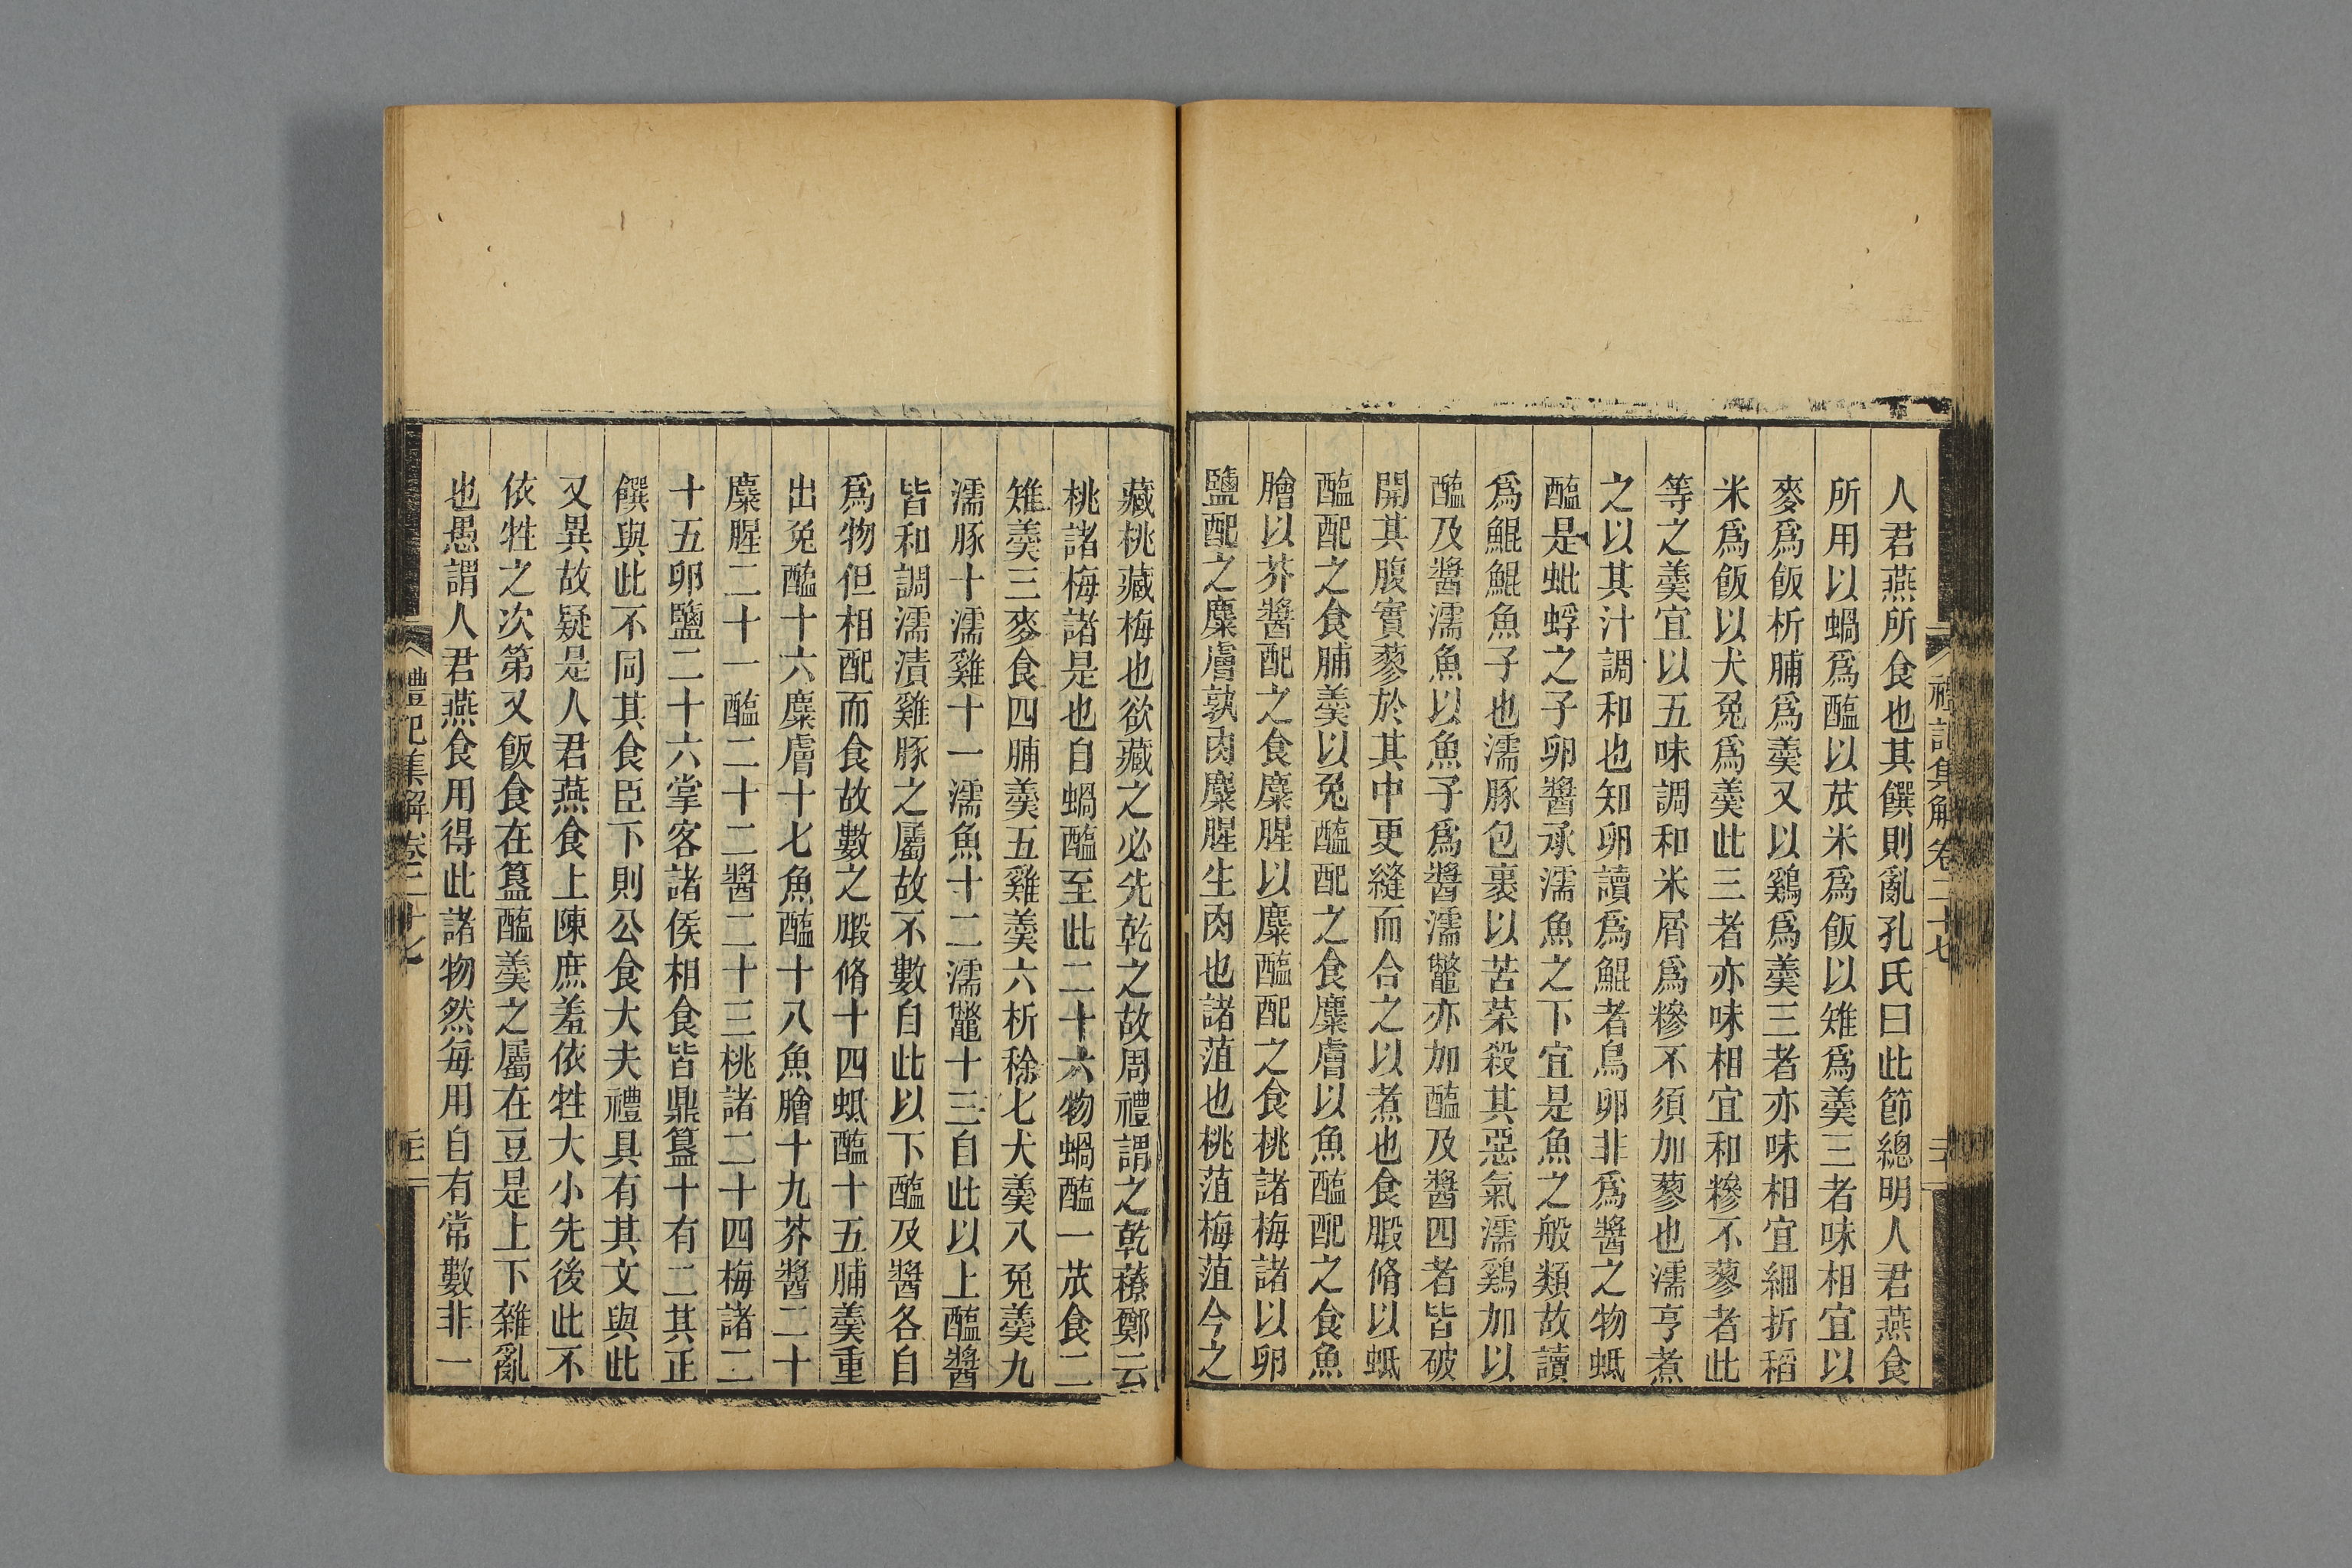 人君燕所食也其饌則亂孔氏曰此節總明人君燕食
所用以蝸爲醢以苽米爲飯以雉爲羹三者味相宜以
麥爲飯析脯爲羹又以鷄爲羹三者亦味相宜細折稻
米爲飯以犬兔爲羹此三者亦味相宜和糝不蓼者此
等之羹宜以五味調和米屑爲糝不須加蓼也濡亨煮
之以其汁調和也知卵讀爲鯤者鳥卵非爲醬之物蚳
醢是蚍蜉之子卵醬承濡魚之下宜是魚之般類故讀
爲鯤鯤魚子也濡豚包裹以苦菜殺其惡氣濡鷄加以
醢及醬濡魚以魚子爲醬濡鼈亦加醢及醬四者皆破
開其腹實蓼於其中更縫而合之以煮也食腶脩以蚳
醢配之食脯羹以兔醢配之食麋膚以魚醢配之食魚
膾以芥醬配之食麋腥以麋醢配之食桃諸梅諸以卵
鹽配之麋膚孰肉麋腥生肉也諸菹也桃菹梅菹今之
藏桃藏梅也欲藏之必先乾之故周禮謂之乾䕩鄭云
桃諸梅諸是也自蝸醢至此二十六物蝸醢一苽食二
雉羹三麥食四脯羹五雞羹六析稌七犬羹八兔羹九
濡豚十濡雞十一濡魚十二濡鼈十三自此以上醢醬
皆和調濡漬雞豚之屬故不數自此以下醢及醬各自
爲物但相配而食故數之腶脩十四蚳醢十五脯羹重
出兔醢十六麋膚十七魚醢十八魚膾十九芥醬二十
麋腥二十一醢二十二醬二十三桃諸二十四梅諸二
十五卵鹽二十六掌客諸侯相食皆鼎簋十有二其正
饌與此不同其食臣下則公食大夫禮具有其文與此
又異故疑是人君燕食上陳庶羞依牲大小先後此不
依牲之次第又飯食在簋醢羹之屬在豆是上下雜亂
也愚謂人君燕食用得此諸物然每用自有常數非一
禮記集解卷二十七
禮記集解卷二十七